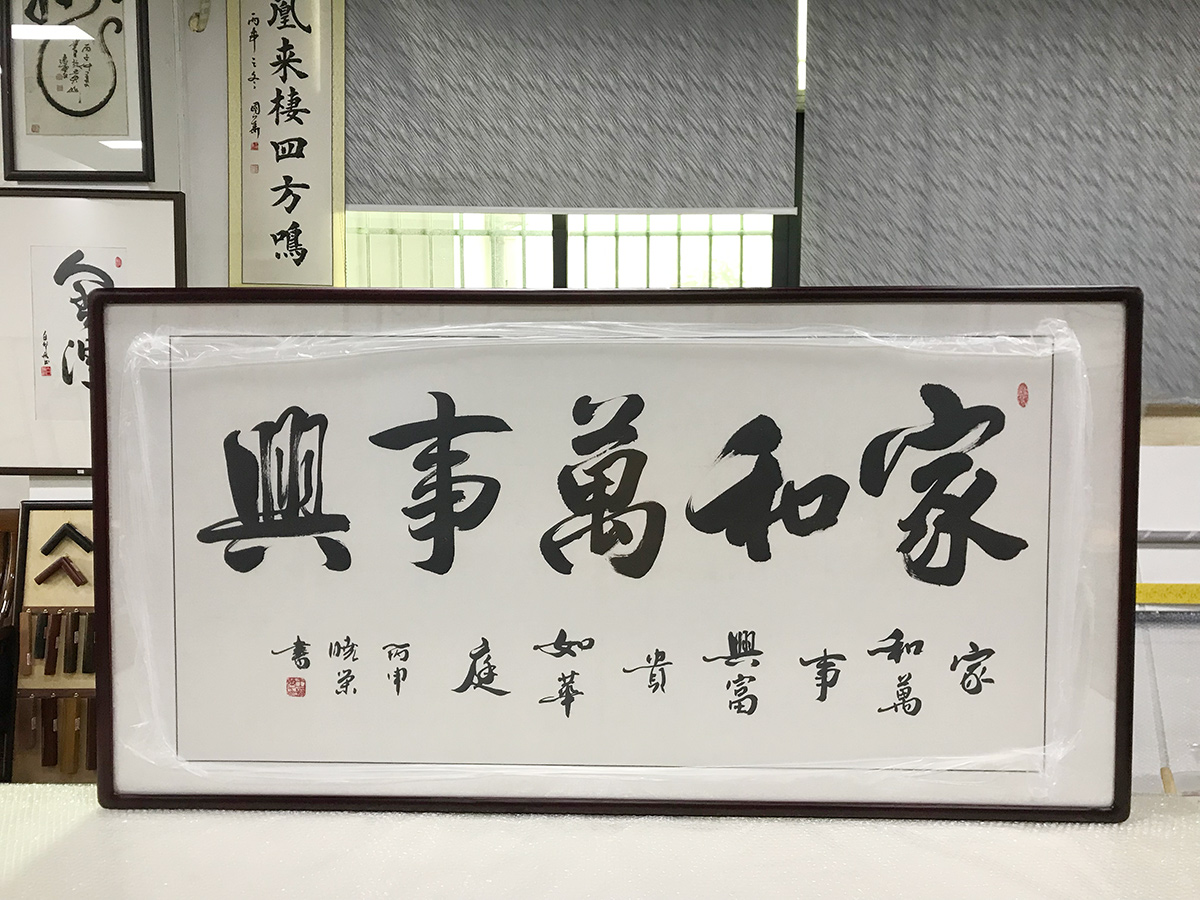 家和萬事興
家
和萬
事
興富
貴
如華
庭
丙申
曉榮
書
凰来棲四方鳴
丙申之冬